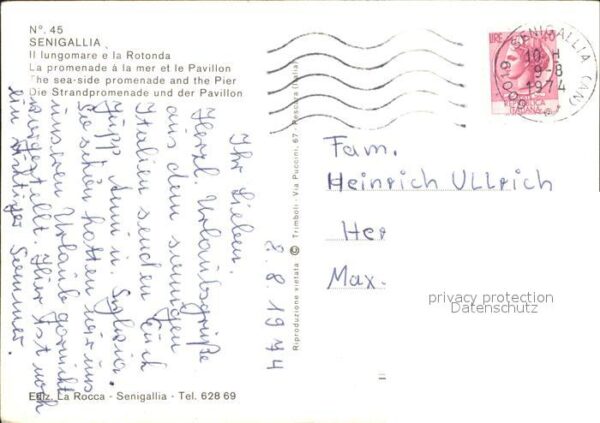 N°. 45
SENIGALLIA
Il lungomare e la Rotonda
La promenade à la mer et le Pavillon
The sea-side promenade and the Pier
Die Strandpromenade und der Pavillon
8. 8. 1974
Ihr Lieben.
Herzl. Urlaubsgrüße
aus dem sonnigen
Italien senden Euch
Jupp Anni u. Sylvia.
So schön hatten wir uns
unseren Urlaub garnicht
vorgestellt. Hier ist noch
ein richtiger Sommer.
Ediz. La Rocca - Senigallia - Tel. 628 69
Riproduzione vietata © Trimboli - Via Puccini, 67 - Pescara (Italia)
LIRE 40
REPUBBLICA
ITALIANA
SENIGALLIA (AN)
10-H
9-8
1974
60019
Fam.
Heinrich Ullrich
Her
Max.
privacy protection
Datenschutz